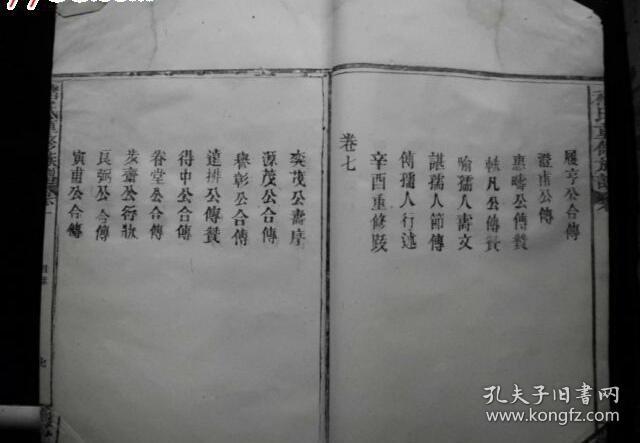 履亨公合傳
澄甫公傳
惠疇公傳贊
軼凡公傳贊
喻孺人壽文
諶孺人節傳
傅孺人行述
辛酉重修跋
卷七
奕茂公壽序
源茂公合傳
譽彰公合傳
達拼公傳贊
得中公合傳
春堂公合傳
步齋公行狀
良弼公合傳
寅甫公合傳
氏重修族譜
孔夫子旧书网
www.kongfz.com